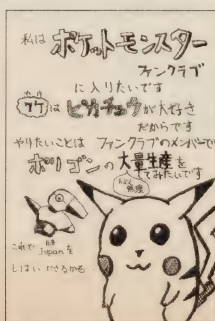 私は ポケットモンスター
ファンクラブ
に入りたいです
ワケ
ワケは ピカチュウが大好き
だからです
やりたいことは ファンクラブのメンバーで
ポリゴンの大量生産を
してみたいです
これで 日本 Japanを
しはいできるかも